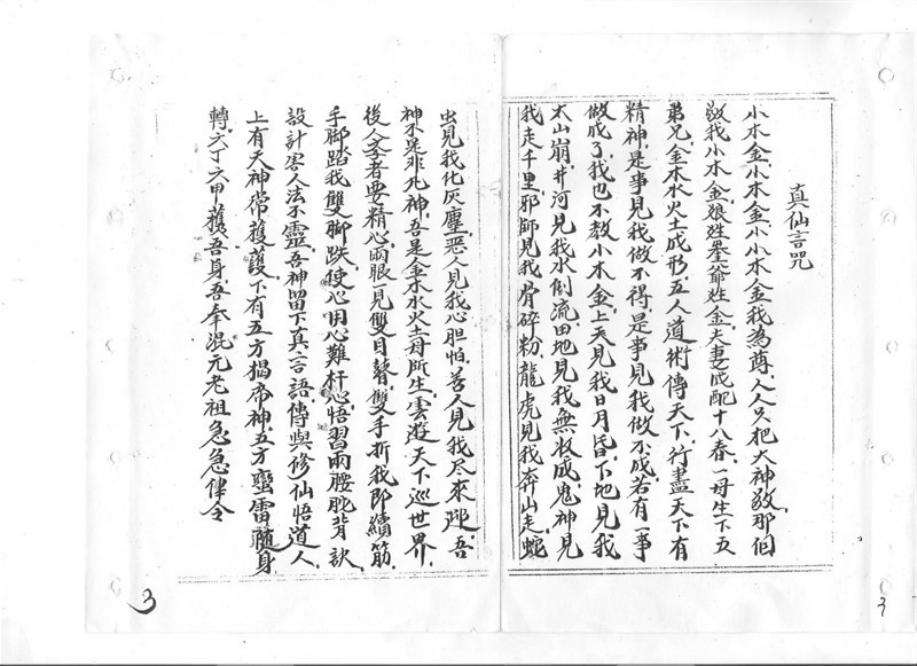 真仙言咒
小木金小木金小小木金我為尊人人只把大神敬那個
敬我小木金娘姓爺姓金夫妻成配十八春一母生下五
弟兄金木水火土成形五人道術傳天下行盡天下有
精神是事見我做不得是事見我做不成若有一事
做成了我也不教小木金上天見我日月昏下地見我
太山崩井河見我水倒流田地見我無收成鬼神見
我走千里邪師見我骨碎粉龍虎見我奔山走蛇
虫見我化灰塵惡人見我心胆怕善人見我尽來吾
神不是非凡神吾是金木水火土母所生雲遊天下巡世界
後人學者要精心兩眼一見雙目瞽雙手折我即續筋
手脚踏我雙脚跌使心用心難心悟習兩腰駝背
設計害人法不靈吾神留下真言語傳與修仙悟道人
上有天神常護下有五方揭帝神五方蠻雷隨身
轉六丁六甲護吾身吾奉混元老祖急急律令
3
3